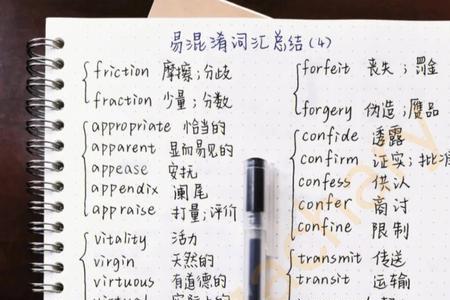 易混淆词汇总结(4)
friction 摩擦;分歧
fraction 少量;分数
appropriate 恰当的
apparent 显而易见的
appease 安抚
appendix 阑尾
appraise 打量;评价
vitality 活力
virgin 天然的
virtuous 有道德的
forfeit 丧失;罚金
forgery 伪造;赝品
confide 透露
confirm 证实;批准
confess 供认
confer 商讨
confine 限制
transmit 传送
transit 运输